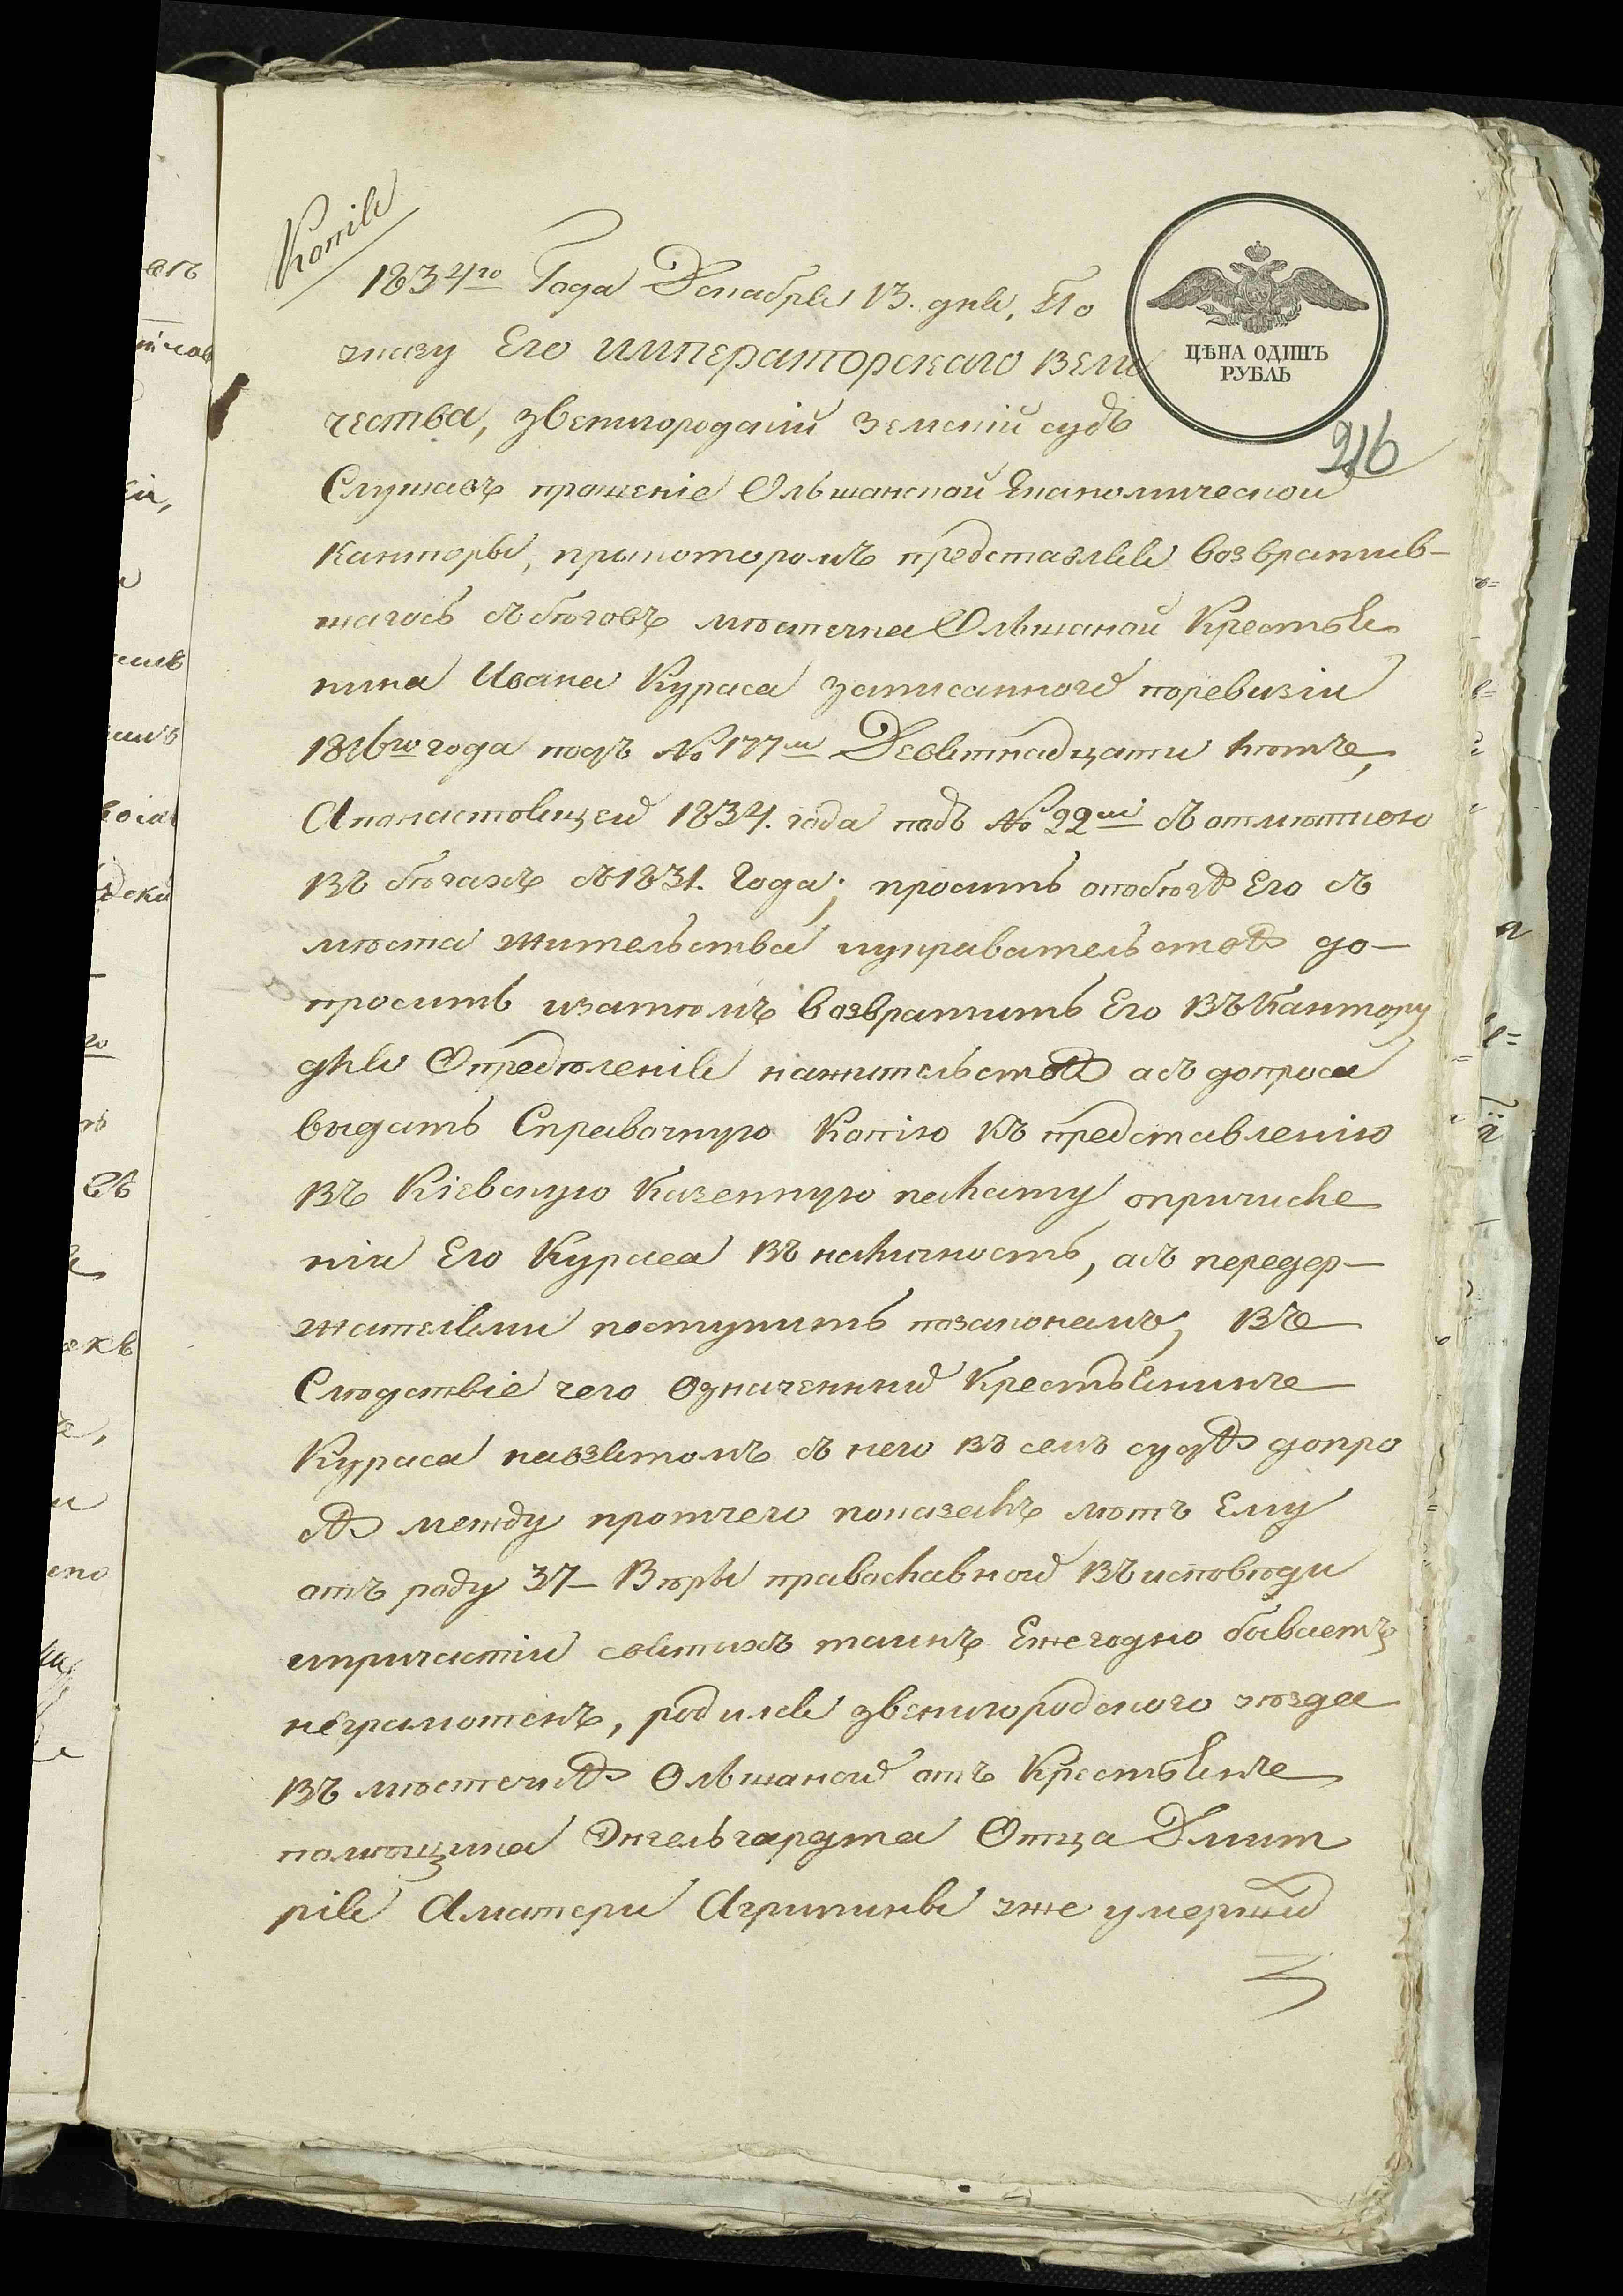 Копія
ЦѢНА ОДИНЪ
РУБЛЬ
216
1834го Года Декабря 13. дня, По
указу Его ИМПЕРАТОРСКАГО Вели
чества, Звенигородскій Земскій судъ
Слушавъ прошеніе Ольшанской Економической
Канторы, прыкоторомъ представляя возвратив-
шагось съ бѣговъ мѣстечка Ольшаной Крестья
нина Ивана Кураса записанного поревизіи
1816го года подъ № 177м Девятнадцати лѣтъ,
Апонастоящей 1834. года подъ № 22мі съ отмѣткою
въ бѣгахъ съ 1831. Года; просить опобѣгѣ Его съ
мѣста жительства иукрывательствѣ до-
просить изатѣмъ возвратить Его въ Кантору
для Опредѣленія нажительство асъ допроса
выдать Справочную Копію къ представленію
въ Кіевскую Казенную палату опричисле
ніи Его Кураса въ наличность, асъ передер-
жателями поступить позаконамъ, въ
Слѣдствіе чего Означенный Крестьянинъ
Кураса навзятомъ съ него въ семъ судѣ допро
сѣ между протчего показалъ лѣтъ Ему
отъ роду 37 - Вѣры православной въ исповѣди
ипричастіи святихъ таинъ Ежегодно бываетъ
неграмотенъ, родился Звенигородского уѣзда
въ мѣстечкѣ Ольшаной отъ Крестьянъ
помѣщика Энгельгардта Отца Дмит
рія Аматери Агрипины уже умершій